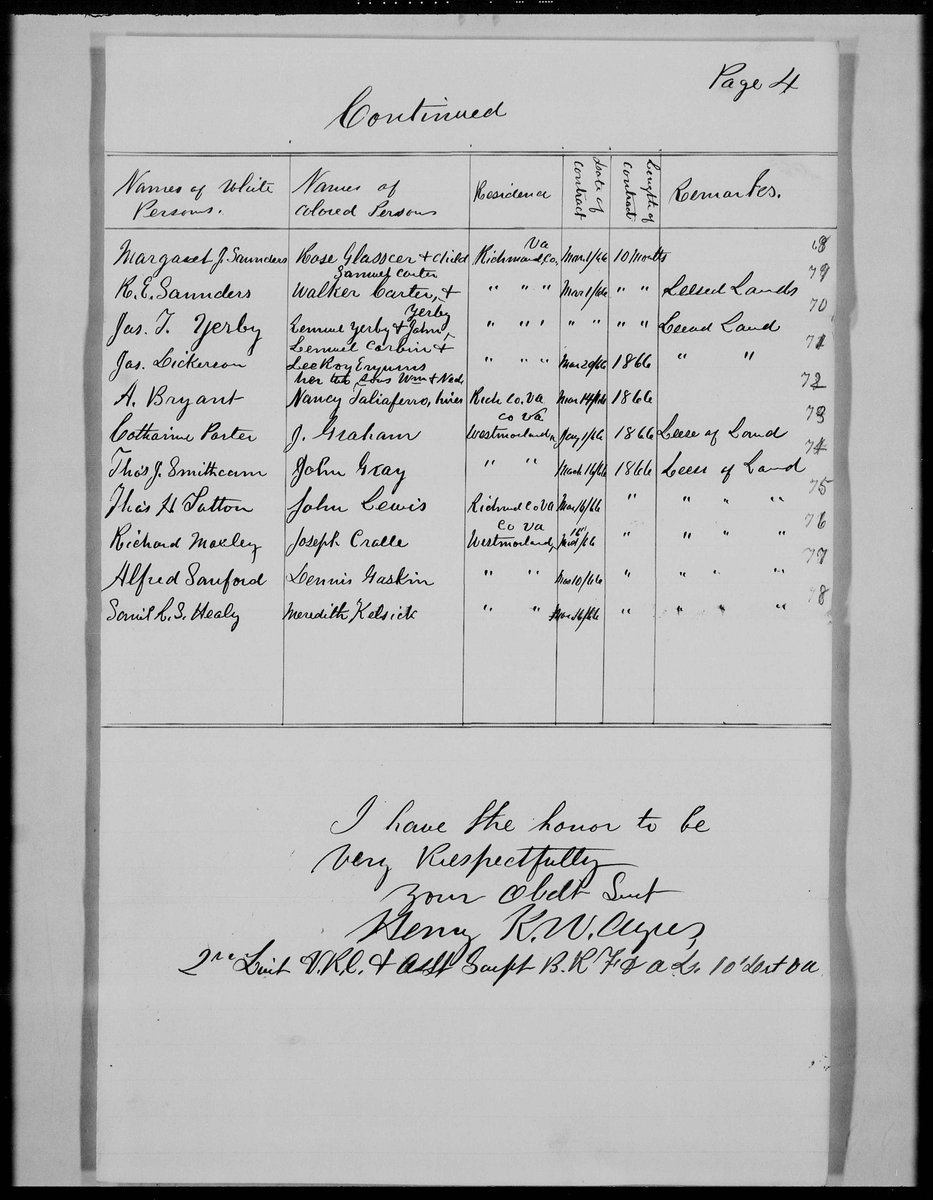 Page 4
Continued
Names of White Persons. | Names of Colored Persons | Residence | Date of Contract | Length of Contract | Remarks.
Margaret J. Saunders | Rose Glasscer + Child | Richmond, Co. Va | Mar 1/66 | 10 Months | 68
R. E. Saunders | Walker Carter, + Samuel Carter | " " " | Mar 1/66 | " " | Leesed Lands 79
Jas. T. Yerby | Lemuel Yerby + John Yerby | " " " | " " | " " | Leesed Land 70
Jas. Dickerson | Lemuel Corbin + LeeRoy | " " " | Mar 20/66 | 1866 | " " 71
A. Bryant | Nancy Taliaferro, hires her two sons Wm + Ned | Rich Co. Va | Mar 14/66 | 1866 | 72
Catharine Porter | J. Graham | Westmorland, Co Va | Jany 1/66 | 1866 | Leese of Land 73
Thos J. | John Gray | " " | March 16/66 | 1866 | Leese of Land 74
Thos H Tatton | John Lewis | Richmd Co Va | Mar 16/66 | " | " " " 75
Richard Moxley | Joseph Cralle | Westmorland, Co Va | /66 | " | " " " 76
Alfred Sanford | Dennis Gaskin | " " | Mar 10/66 | " | " " " 77
Saml R. S. Healy | Meredith Kelsick | " " | Mar 16/66 | " | " " " 78
I have the honor to be
Very Respectfully
Your Obdt Svnt
Henry K. W. Ayres,
2nd Lieut V.R.C. + Asst Supt B. R. F & A L. 10" Dist Va